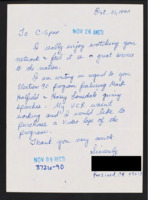 Oct. 31, 1990
To C-Span
I really enjoy watching your
network & feel it is a great service
to the nation.
I am writing in regard to your
Election 90 program featuring Mark
Hatfield & Harry Lonsdale giving
speeches. My VCR wasn't
working and I would like to
purchase a video tape of the
program.
Thank you very much
Sincerely
3726-90